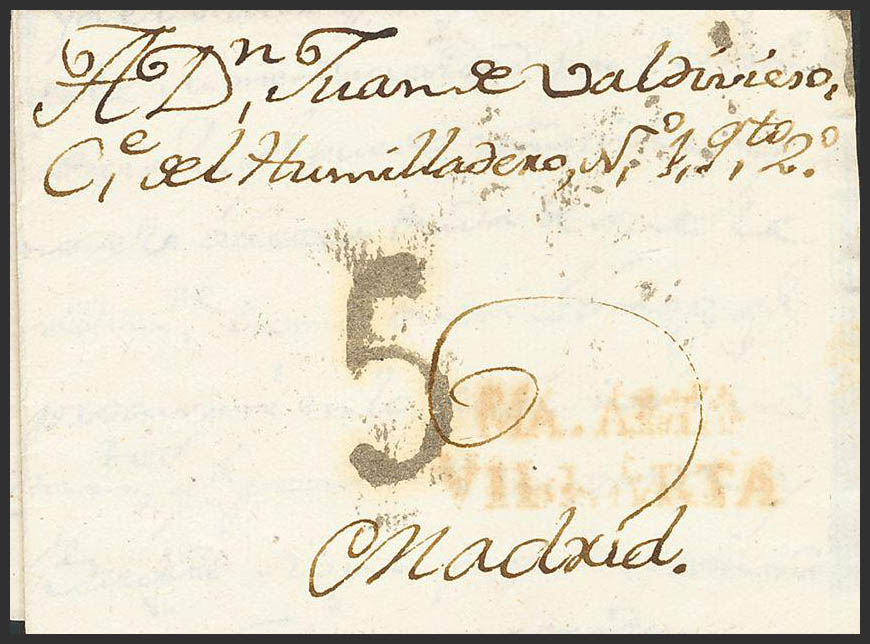 A Dn, Juan de Valdivieso,
Ce, del Humilladero, N,o 1, qto, 2.o
5
Madrid.